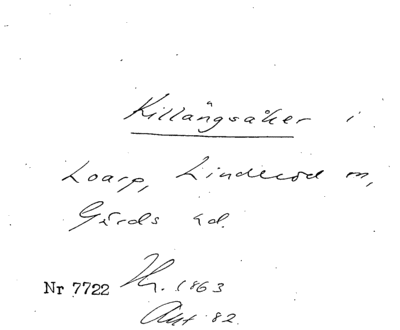 Killängsåker i
Loarp, Linderöd sn,
Gärds hd.
Nr 7722 Th. 1863
Akt 82.